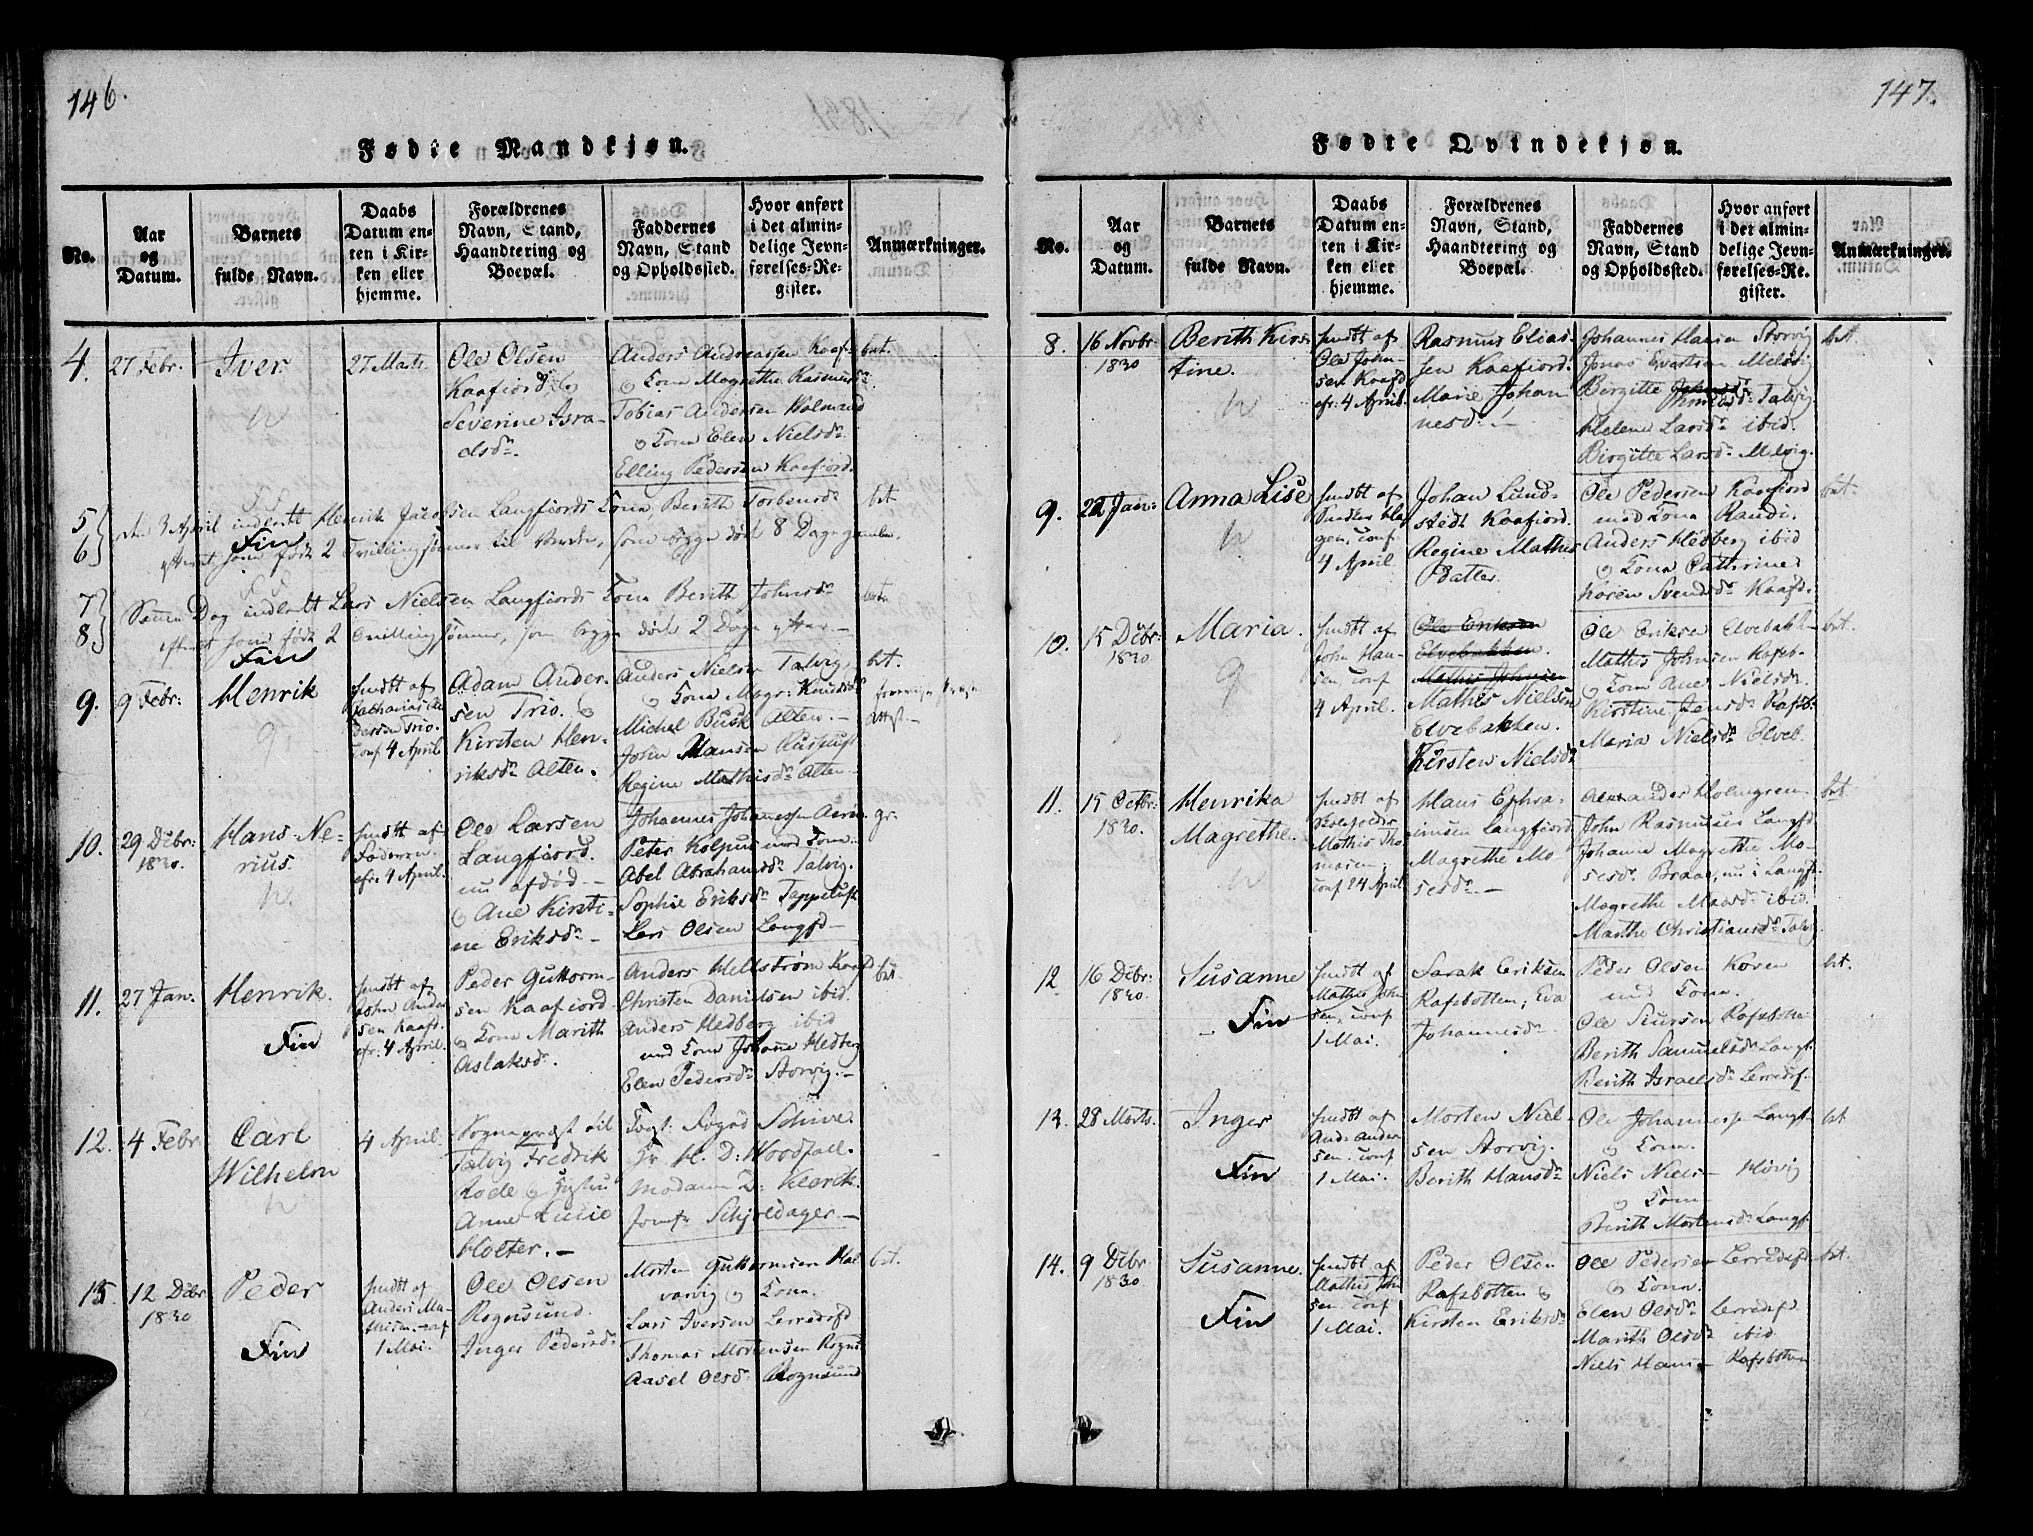 146.
Fødte Mandkjøn.
No.
Aar og Datum.
Barnets fulde Navn.
Daabs Datum enten i Kirken eller hjemme.
Forældrenes Navn, Stand, Haandtering og Boepæl.
Faddernes Navn, Stand og Opholdssted.
Hvor anført i det almindelige Jevnførelses-Register.
Anmærkninger.
4.
27 Febr:
Iver
27 Marts
Ole Olsen
Kaafiord &
Severine Isra-
elsdr.
Anders Andreassen Kaaf-
& Kona Magrethe Rasmusdr.
Tobias Andersen Holmen
& Kona Elen Nielsdr
Elling Pedersen Kaafiord.
bet.
5
6
den 3 April indledt Henrik Jacobsen Langfiords Kona, Berith Torbensdr
Fin
efterat have født 2 Tvillingsønner til Verden, som begge døde 8 Dage gamle.
bet
7
8.
Samme Dag indledt Lars Nielsen Langfiords Kona Berith Johnsdr
efterat have født 2 Tvillingsønner, som begge døde 2 Dage efter —
Fin
bet
9.
9 Febr:
Henrik
hiemdøbt af
Zacharias An-
dersen Trio.
conf 4 April
Adam Ander-
sen Trio. &
Kirsten Hen-
riksdr Alten.
Anders Nielsen Talvig,
& Kona Magr: Knudsdr
Michel Busk Alten. —
John Hansen Russeluft
Regine Mathisdr Alten —
bet.
Attest. —
10.
29 Debr:
1830.
Hans Ne-
rius.
hiemdøbt af
Faderen.
cfr. 4 April.
Ole Larsen
Langfiord.
nu afdød —
& Ane Kirsti-
ne Eriksdr —
Johannes Johannessen
Peter Kolpus med Kona
Abel Abrahamsdr Talvig.
Sophie Eriksdr Tappeluft
Lars Olsen Langfd —
gr.
11.
27 Jan:
Henrik.
Fin
hiemdøbt af
John Ander
sen Kaafd.
cfr: 4 April.
Peder Guttorm-
sen Kaafiord
& Kona Marith
Aslaksdr.
Anders Hellstrøm Kaafd
Christen Danielsen ibid.
Anders Hedberg ibid
med Kona Johanne Hedberg
Elen Pedersdr Storvig. —
bet.
12.
4 Febr:
Carl
Wilhelm
4 April.
Sognepræst til
Talvig Fredrik
Rode & Hustru
Anne Lucie
Holter. —
Fogt: Foged Schive.
Hr H. D: Woodfall.
Madame D: Klerck.
Jomfr Schjelderup —
15.
12 Debr
1830
Peder
Fin
hiemdøbt af
Anders Ma-
thisen. conf
1 Mai.
Ole Olsen
Rognsund.
Inger Pedersdr
Morten Guttormsen Hal
varvig & Kona.
Lars Iversen Lerredsfd
Thomas Mortensen Rogns.
Aasel Olsdr Rognsund
bet.
147.
Fødte Qvindekjøn.
No.
Aar og Datum.
Barnets fulde Navn.
Daabs Datum enten i Kirken eller hjemme.
Forældrenes Navn, Stand, Haandtering og Boepæl.
Faddernes Navn, Stand og Opholdssted.
Hvor anført i det almindelige Jevnførelses-Re-gister.
Anmærkninger.
8.
16 Novbr
1830
Berith Kirs-
tine.
hiemdøbt af
Ole John-
sen Kaafd
cfr: 4 April.
Rasmus Elias-
sen Kaafiord.
Marie Johan
nesdr. —
Johannes Hansen Storvig
Jonas Evertsen Melsvig
Birgitte Thomasdr Talvig
Helene Larsdr ibid.
Birgitte Larsdr Melsvig.
bet.
9.
22 Jan:
Anna Lise
hiemdøbt af
Peder Ha
gen, conf
4 April
Johan Lund-
stedt Kaafiord.
Regine Mathis
Datter.
Ole Pedersen Kaafiord
med Kona Randi.
Anders Hedberg ibid
& Kona Cathrine
Karen Svendsdr Kaafd.
bet.
10.
15 Debr:
1830
Maria.
hiemdøbt af
John Han-
sen, conf
4 April.
Ole Eriksen
Elvebakken.
Mathis Johnsen
Mathis Nielsen
Elvebakken.
Kirsten Nielsdr
Ole Eriksen Elvebak —
Mathis Johnsen Rafsb-
& Kona Ane Nielsdr.
Kirstine Jensdr Rafsb.
Maria Nielsdr Elveb.
bet.
11.
15 Octbr:
1830.
Henrika
Magrethe.
hiemdøbt af
Skoleholder
Mathis Tho
masen;
conf 24 April
Hans Ephra-
imsen Langfiord
Magrethe Mo-
sesdr. —
Alexander Holmgren —
John Rasmusen Langfd
Johanne Magrethe Mo-
sesdr Braae, nu i Langf.
Magrethe Maasdr ibid.
Marthe Christiansdr Talvig
bet
12
16 Debr:
1830.
Susanne
Fin
hiemdøbt af
Mathis John
sen, conf
1 Mai.
Sarak Eriksen
Rafsbotten; Eva
Johannesdr —
Peder Olsen Koren
med Kona.
Ole Siursen Rafsbotn
Berith Samuelsdr Langf.
Berith Israelsdr Lerredsf.
bet.
13.
28 Marts.
Inger
Fin
hiemdøbt af
And: Ander
sen. conf
1 Mai.
Morten Niel-
sen Storvig.
Berith Hansdr
Ole Johannesen Langf
& Kona.
Niels Niels- Kløvig
& Kona —
Berith Mortensdr Langf.
bet
14.
9 Debr
1830
Susanne.
Fin
hiemdøbt af
Mathis John
sen. conf
1 Mai.
Peder Olsen
Rafsbotten &
Kirsten Eriksdr
Ole Pedersen Lerredsfd
& Kona.
Elen Olsdr Lerredsfd
Marith Olsdr ibid
Niels Hans- Rafsbotten
bet.